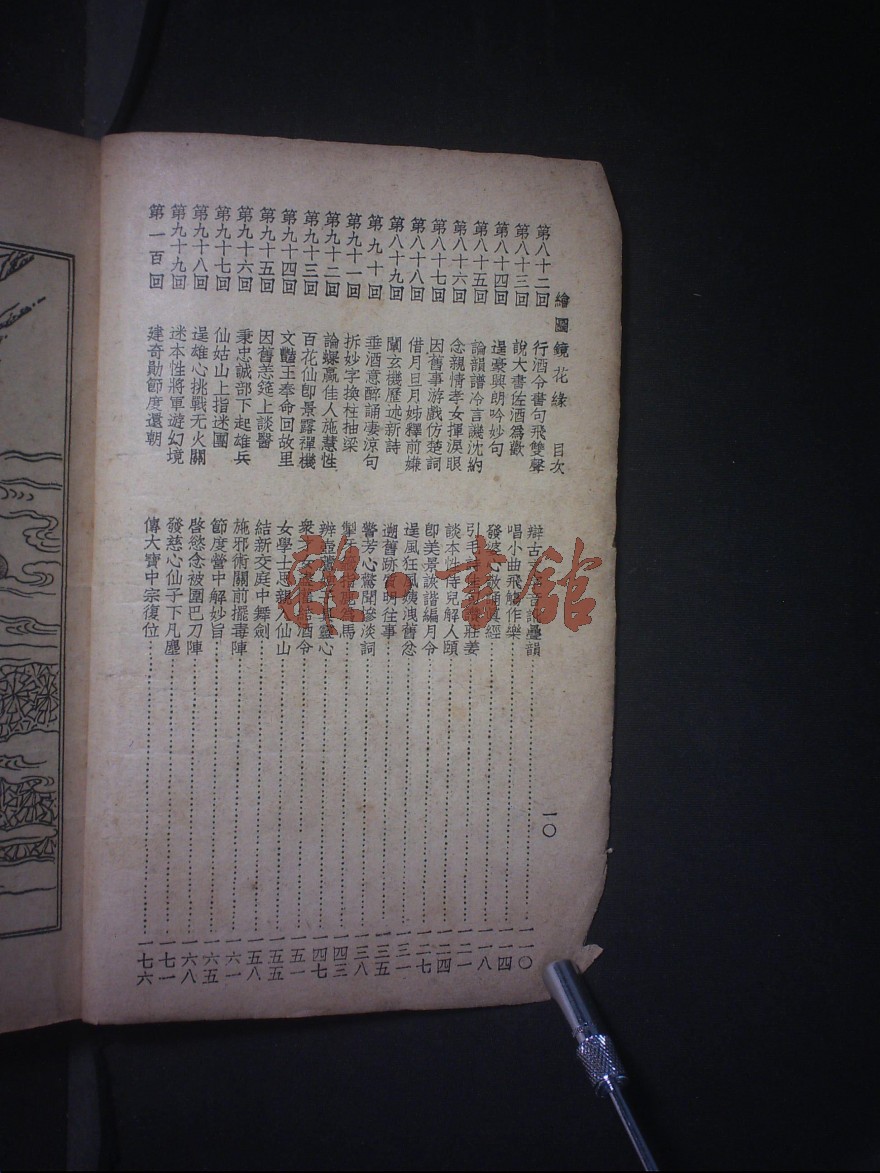 繪圖鏡花緣 目次 一〇
第八十二回 行酒令書句飛雙聲 辯古文字音訛疊韻 一一〇
第八十三回 說大書佐酒為歡 唱小曲飛觴作樂 一一四
第八十四回 逞豪興朗吟妙句 發婆心敬誦真經 一一八
第八十五回 論韻譜冷言譏沈約 引毛詩 莊姜 一二一
第八十六回 念親情孝女揮淚眼 談本性侍兒解人頤 一二四
第八十七回 因舊事游戲仿楚詞 卽美景詼諧編月令 一二七
第八十八回 借月旦月姊釋前嫌 逞風狂風姨洩舊忿 一三一
第八十九回 闡玄機歷述新詩 溯舊跡質明往事 一三五
第九十回 垂酒意醉誦凄涼句 警芳心驚聞慘淡詞 一三八
第九十一回 拆妙字換柱抽梁 掣牙籤指鹿為馬 一四三
第九十二回 論蜾蠃佳人施慧性 辨壺蘆 靈心 一四七
第九十三回 百花仙卽景露禪機 衆才女 酒令 一五一
第九十四回 文豔王奉命回故里 女學士思親入仙山 一五五
第九十五回 因舊恙筵上談醫 結新交庭中舞劍 一五八
第九十六回 秉忠誠部下起雄兵 施邪術關前擺毒陣 一六一
第九十七回 仙姑山上指迷團 節度營中解妙旨 一六五
第九十八回 逞雄心挑戰无火關 啓慾念被圍巴刀陣 一六八
第九十九回 迷本性將軍遊幻境 發慈心仙子下凡塵 一七一
第一百回 建奇勛節度還朝 傳大寶中宗復位 一七六
雜·書館